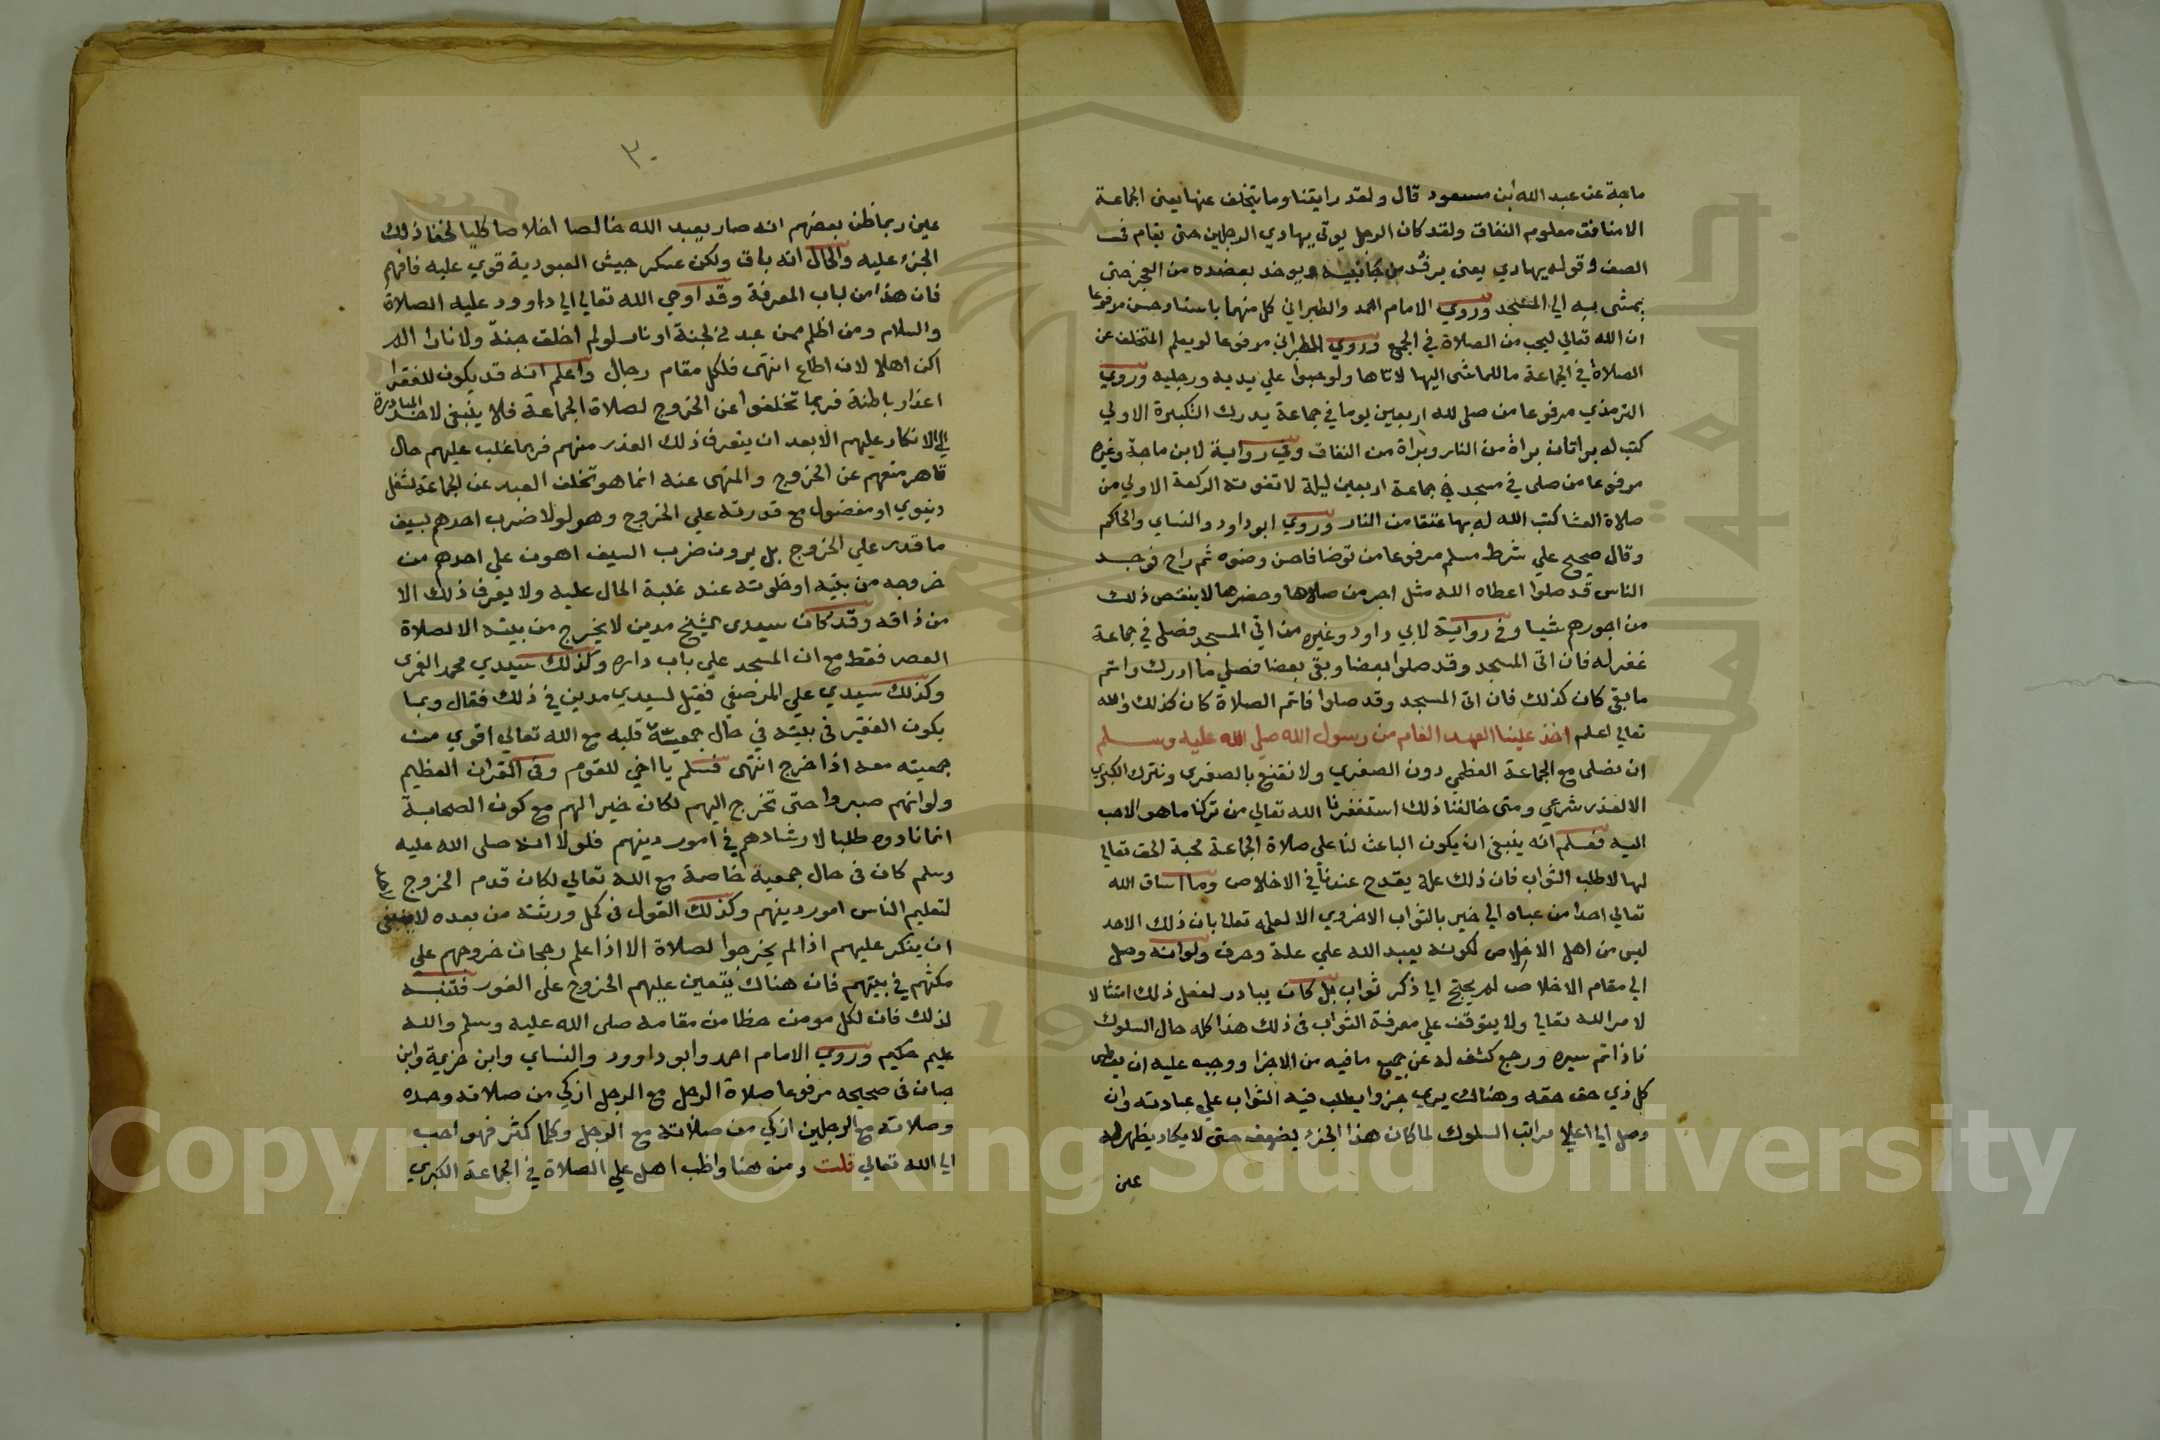 ماجة عن عبد الله بن مسعود قال ولقد رايتنا وما يتخلف عنها يعني الجماعة
الا منافق معلوم النفاق ولقد كان الرجل يوتي يهادي الرجلين حتى يقام في
الصف وقوله يهادي يعني يرفد من جانبيه ويوخذ بعضده من العجز حتى
يمشى به الي المسجد وروي الامام احمد والطبراني كل منهما باسناد حسن مرفوعا
ان الله تعالي ليعجب من الصلاة في الجمع وروي الطبراني مرفوعا لو يعلم المتخلف عن
الصلاة في الجماعة ما للماشى اليها لاتاها ولو حبوا علي يديه ورجليه وروي
الترمذي مرفوعا من صلى لله اربعين يوما في جماعة يدرك التكبيرة الاولي
كتب له براتان براة من النار وبراة من النفاق وفي رواية لابن ماجة وغيره
مرفوعا من صلى في مسجد في جماعة اربعين ليلة لا تفوته الركعة الاولي من
صلاة العشا كتب الله له بها عتقا من النار وروي ابو داود والنساي والحاكم
وقال صحيح علي شرط مسلم مرفوعا من توضا فاحسن وضوه ثم راح فوجد
الناس قد صلوا اعطاه الله مثل اجر من صلاها وحضرها لا ينقص ذلك
من اجورهم شيا وفى رواية لابي داود وغيره من اتي المسجد فصلى في جماعة
غفر له فان اتى المسجد وقد صلوا بعضا وبقى بعضا فصلي ما ادرك واتم
ما بقى كان كذلك فان اتى المسجد وقد صلوا فاتم الصلاة كان كذلك والله
تعالي اعلم اخذ علينا العهد العام من رسول الله صلى الله عليه وسلم
ان نصلى مع الجماعة العظمي دون الصغري ولا نقنع بالصغري ونترك الكبري
الا لعذر شرعي ومتى خالفنا ذلك استغفرنا الله تعالي من تركنا ما هو الاحب
اليه فعلم انه ينبغى ان يكون الباعث لنا علي صلاة الجماعة محبة الحق تعالي
لها لا طلب الثواب فان ذلك علة يقدح عندنا في الاخلاص وما اساق الله
تعالي احدا من عباه الي خير بالثواب الاخروي الا لعلمه تعالي بان ذلك الاحد
ليس من اهل الاخلاص لكونه يعبد الله علي علة وحرف ولو انه وصل
الي مقام الاخلاص لم يحتج الي ذكر ثواب بل كان يبادر لفعل ذلك امتثالا
لامر الله تعالي ولا يتوقف علي معرفة الثواب في ذلك هذا كله حال السلوك
فاذا تم سيره ورجع كشف له عن جميع ما فيه من الاجزا ووجب عليه ان يعطى
كل ذي حق حقه وهناك يري جزوا يطلب فيه الثواب علي عبادته وان
وصل الي اعلا مراتب السلوك لما كان هذا الجزء يضعف حتى لا يكاد يظهر له
عين
٣٠
عين ربما ظن بعضهم انه صار يعبد الله خالصا اخلاصا كليا لخفا ذلك
الجزء عليه والحال انه باق ولكن عسكر جيش العبودية قوي عليه فافهم
فان هذا من لباب المعرفة وقد اوحي الله تعالي الي داوود عليه الصلاة
والسلام ومن اظلم ممن عبدني لجنة او نار لو لم اخلق جنة ولا نارا الم
اكن اهلا لان اطاع انتهى فلكل مقام رجال واعلم انه قد يكون للفقرا
اعذار باطنة فربما تخلفوا عن الخروج لصلاة الجماعة فلا ينبغى لاحد المبادرة
الي الانكار عليهم الا بعد ان يتعرف ذلك العذر منهم فربما غلب عليهم حال
قاهر منعهم عن الخروج والمنهى عنه انما هو تخلف العبد عن الجماعة لشغل
دنيوي او مفضول مع قدرته علي الخروج وهو لو لا ضرب احدهم بسيف
ما قدر علي الخروج بل يرون ضرب السيف اهون علي احدهم من
خروجه من بيته او خلوته عند غلبة الحال عليه ولا يعرف ذلك الا
من ذاقه وقد كان سيدى الشيخ مدين لا يخرج من بيته الا لصلاة
العصر فقط مع ان المسجد علي باب داره وكذلك سيدي محمد الغمرى
وكذلك سيدي علي المرصفي فقيل لسيدي مدين في ذلك فقال وربما
يكون الفقير في بيته في حال جمعية قلبه مع الله تعالي اقوي من
جمعيته معه اذا خرج انتهى فسلم يا اخي للقوم وفى القران العظيم
ولو انهم صبروا حتى تخرج اليهم لكان خيرا لهم مع كون الصحابة
انما نادوه طلبا لارشادهم في امور دينهم فلولا انه صلى الله عليه
وسلم كان فى حال جمعية خاصة مع الله تعالي لكان قدم الخروج
لتعليم الناس امور دينهم وكذلك القول فى كمل ورثته من بعده لا ينبغى
ان ينكر عليهم اذا لم يخرجوا لصلاة الا اذا علم رجحان خروجهم على
مكثهم في بيتهم فان هناك يتعين عليهم الخروج على الفور فتنبه
لذلك فان لكل مومن حظا من مقامه صلى الله عليه وسلم والله
عليم حكيم وروي الامام احمد وابو داوود والنساي وابن خزيمة وابن
حبان فى صحيحه مرفوعا صلاة الرجل مع الرجل ازكي من صلاته وحده
وصلاته مع الرجلين ازكي من صلاته مع الرجل وكلما كثر فهو احب
الي الله تعالي قلت ومن هنا واظب اهل علي الصلاة في الجماعة الكبري
Copyright © King Saud University